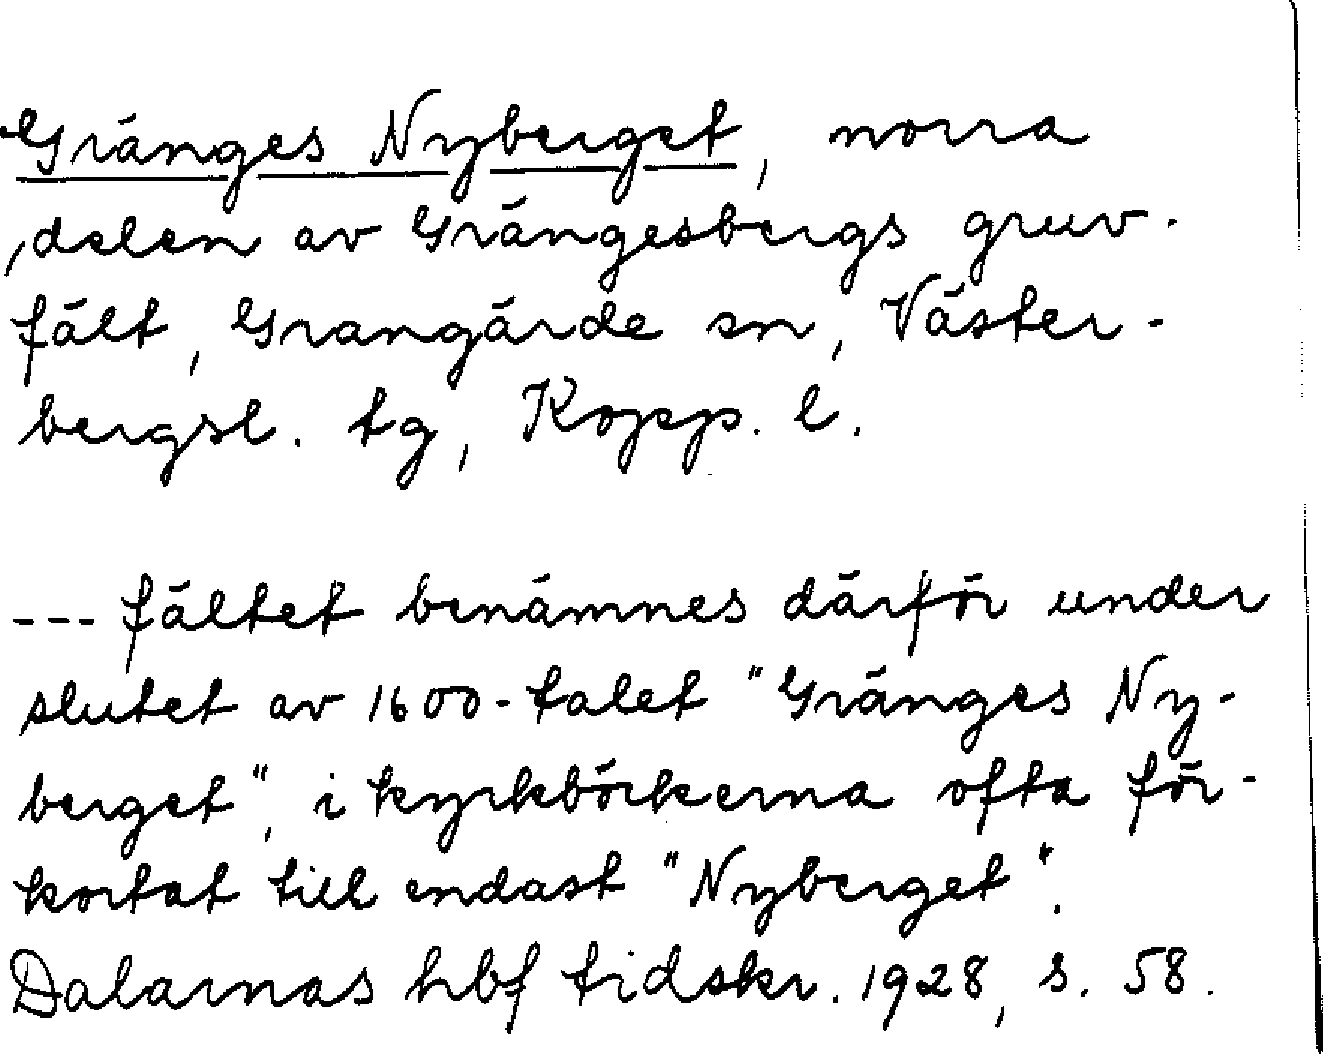 Gränges Nyberget, norra
delen av Grängesbergs gruv-
fält, Grangärde sn, Väster-
bergsl. tg, Kopp. l.
--- fältet benämnes därför under
slutet av 1600-talet "Gränges Ny-
berget", i kyrkböckerna ofta för-
kortat till endast "Nyberget".
Dalarnas hbf tidskr. 1928, s. 58.